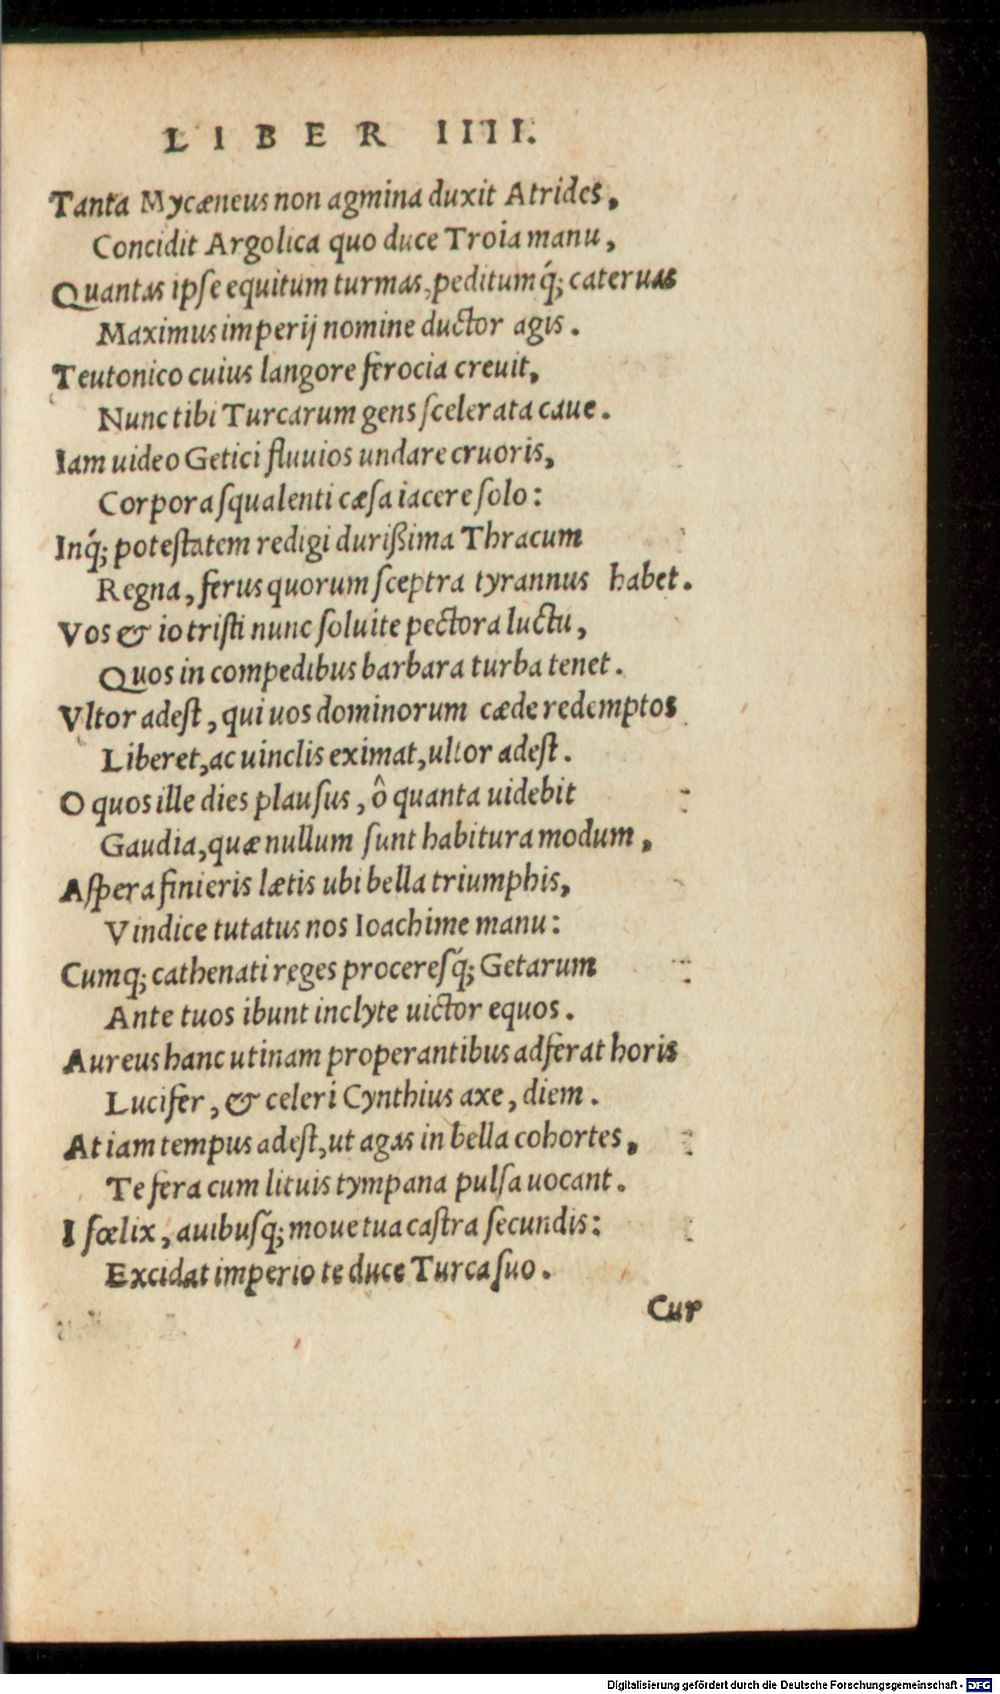 LIBER IIII.
Tanta Mycæneus non agmina duxit Atrides,
Concidit Argolica quo duce Troia manu,
Quantas ipse equitum turmas, peditumq́; cateruas
Maximus imperij nomine ductor agis.
Teutonico cuius langore ferocia creuit,
Nunc tibi Turcarum gens scelerata caue.
Iam uideo Getici fluuios undare cruoris,
Corpora squalenti cæsa iacere solo:
Inq́; potestatem redigi durißima Thracum
Regna, ferus quorum sceptra tyrannus habet.
Vos & io tristi nunc soluite pectora luctu,
Quos in compedibus barbara turba tenet.
Vltor adest, qui uos dominorum cæde redemptos
Liberet, ac uinclis eximat, ultor adest.
O quos ille dies plausus, ô quanta uidebit
Gaudia, quæ nullum sunt habitura modum,
Aspera finieris lætis ubi bella triumphis,
Vindice tutatus nos Ioachime manu:
Cumq; cathenati reges proceresq́; Getarum
Ante tuos ibunt inclyte uictor equos.
Aureus hanc utinam properantibus adferat horis
Lucifer, & celeri Cynthius axe, diem.
At iam tempus adest, ut agas in bella cohortes,
Te fera cum lituis tympana pulsa uocant.
I fœlix, auibusq́; moue tua castra secundis:
Excidat imperio te duce Turca suo.
Cur
Digitalisierung gefördert durch die Deutsche Forschungsgemeinschaft - DFG